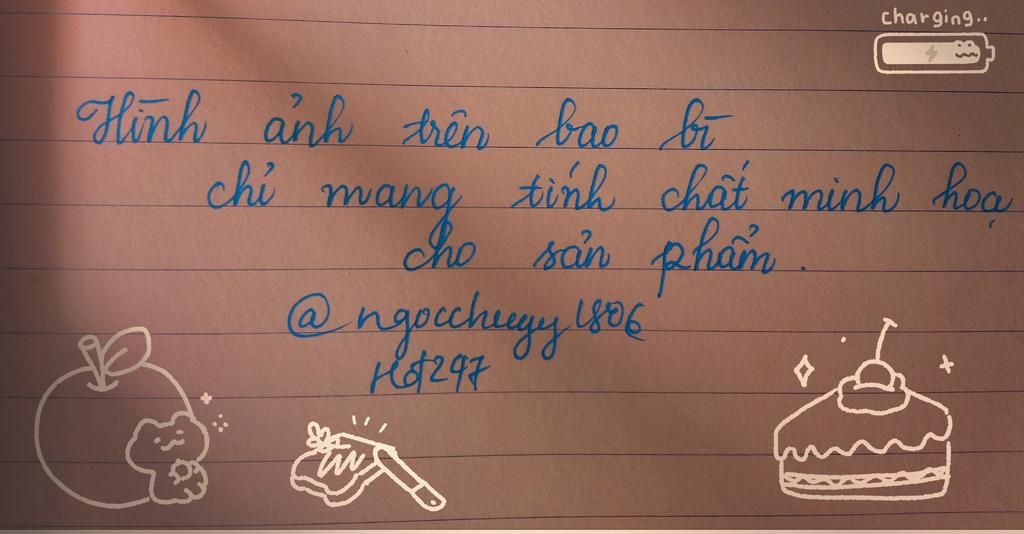 charging..
Hình ảnh trên bao bì
chỉ mang tính chất minh hoạ
cho sản phẩm.
@ngocchuugy1806
Hot247